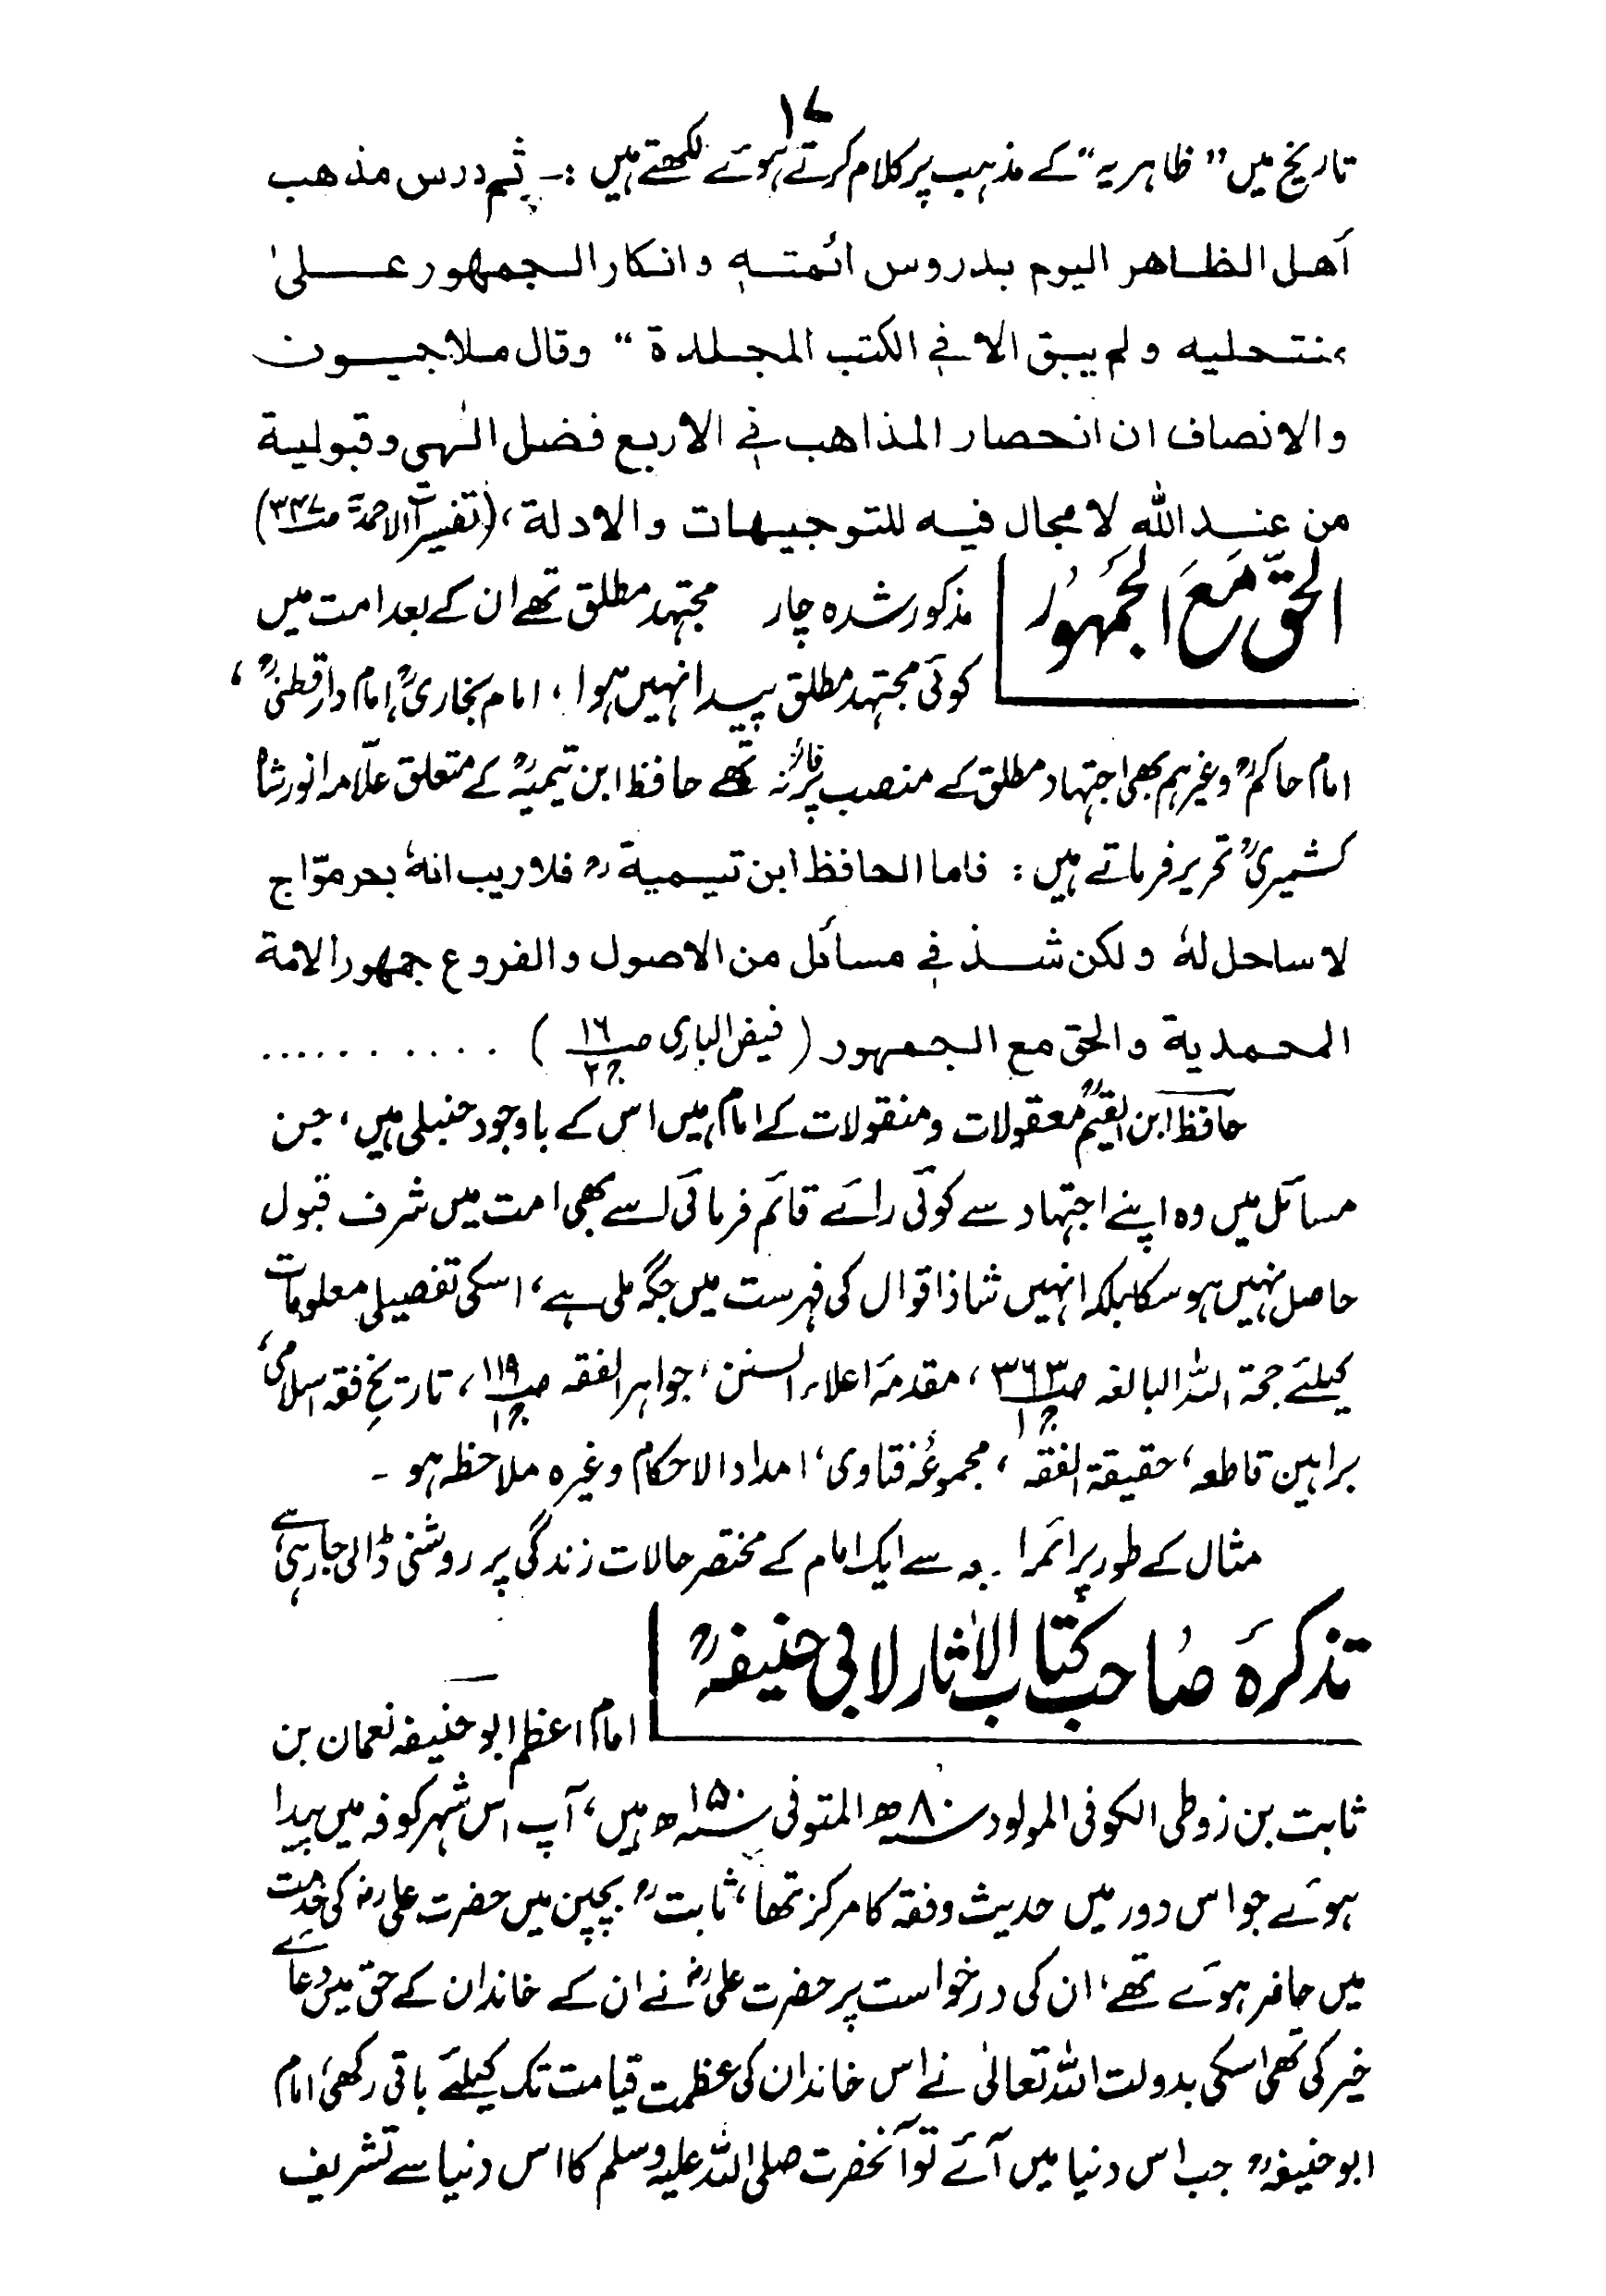 ۱۷
تاریخ میں ”ظاہریہ“ کے مذہب پر کلام کرتے ہوئے لکھتے ہیں :۔ ثم درس مذهب
أهل الظاهر اليوم بدروس ائمته وانكار الجمهور على
منتحليه ولم يبق الا في الكتب المجلدة “ وقال ملاجيون
والانصاف ان انحصار المذاهب في الاربع فضل الٰهى وقبولية
من عند الله لا مجال فيه للتوجيهات والادلة ، (تفسیرات الاحمدیۃ ص۳۴۷)
الحقّ مَعَ الجَمهُور
مذکور شدہ چار مجتہد مطلق تھے ان کے بعد امت میں
کوئی مجتہد مطلق پیدا نہیں ہوا ، امام بخاریؒ، امام دارقطنیؒ ،
امام حاکمؒ وغیرہم بھی اجتہاد مطلق کے منصب پر فائز نہ تھے حافظ ابن تیمیہؒ کے متعلق علّامہ انور شاہ
کشمیریؒ تحریر فرماتے ہیں : فاما الحافظ ابن تيمية رح فلا ريب انهٗ بحر موّاج
لا ساحل لهٗ ولكن شذ في مسائل من الاصول والفروع جمهور الامة
المحمدية والحق مع الجمهور ( فیض الباری ص۱۶ ج۲ ) . . . . . . . . . .
حافظ ابن القیمؒ معقولات و منقولات کے امام ہیں اس کے باوجود حنبلی ہیں ، جن
مسائل میں وہ اپنے اجتہاد سے کوئی رائے قائم فرمائی اسے بھی امت میں شرف قبول
حاصل نہیں ہو سکا بلکہ انہیں شاذ اقوال کی فہرست میں جگہ ملی ہے ، اسکی تفصیلی معلومات
کیلئے حجۃ اللہ البالغہ ص۳۶۳ ج۱ ، مقدمۂ اعلاء السنن ، جواہر الفقہ ص۱۱۹ ج۱ ، تاریخِ فقہ اسلامی ،
براہین قاطعہ ، حقیقۃ الفقہ ، مجموعۂ فتاوی ، امداد الاحکام وغیرہ ملاحظہ ہو ۔
مثال کے طور پر ائمہ اربعہ سے ایک امام کے مختصر حالات زندگی پر روشنی ڈالی جا رہی ہے
تذکرہ صَاحب کتاب الاٰثار لابی حنیفہؒ
امام اعظم ابو حنیفہ نعمان بن
ثابت بن زوطی الکوفی المولود سنہ ۸۰ھ المتوفی سنہ ۱۵۰ھ ہیں ، آپ اس شہر کوفہ میں پیدا
ہوئے جو اس دور میں حدیث وفقہ کا مرکز تھا ، ثابتؒ بچپن میں حضرت علیؓ کی خدمت
میں حاضر ہوئے تھے ، ان کی درخواست پر حضرت علیؓ نے ان کے خاندان کے حق میں دعائے
خیر کی تھی اسکی بدولت اللہ تعالیٰ نے اس خاندان کی عظمت قیامت تک کیلئے باقی رکھی ، امام
ابو حنیفہؒ جب اس دنیا میں آئے تو آنحضرت صلی اللہ علیہ وسلم کا اس دنیا سے تشریف